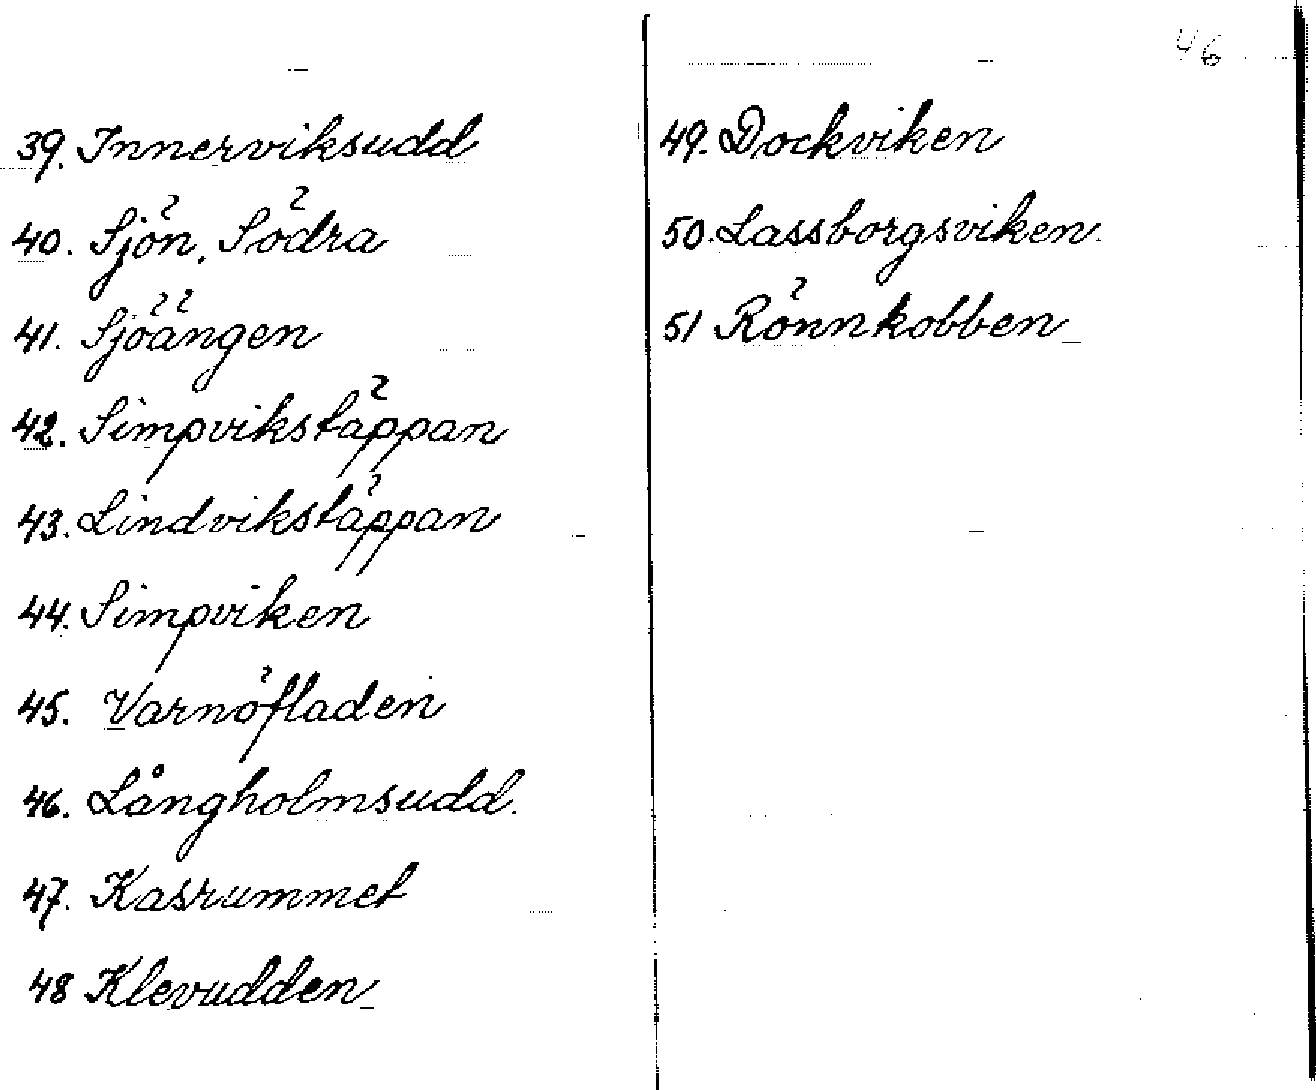 39. Innerviksudd
40. Sjön, Södra
41. Sjöängen
42. Simpvikstäppan
43. Lindvikstäppan
44. Simpviken
45. Varnöfladen
46. Långholmsudd.
47. Kasrummet
48 Klevudden
46
49. Dockviken
50. Lassborgsviken.
51 Rönnkobben